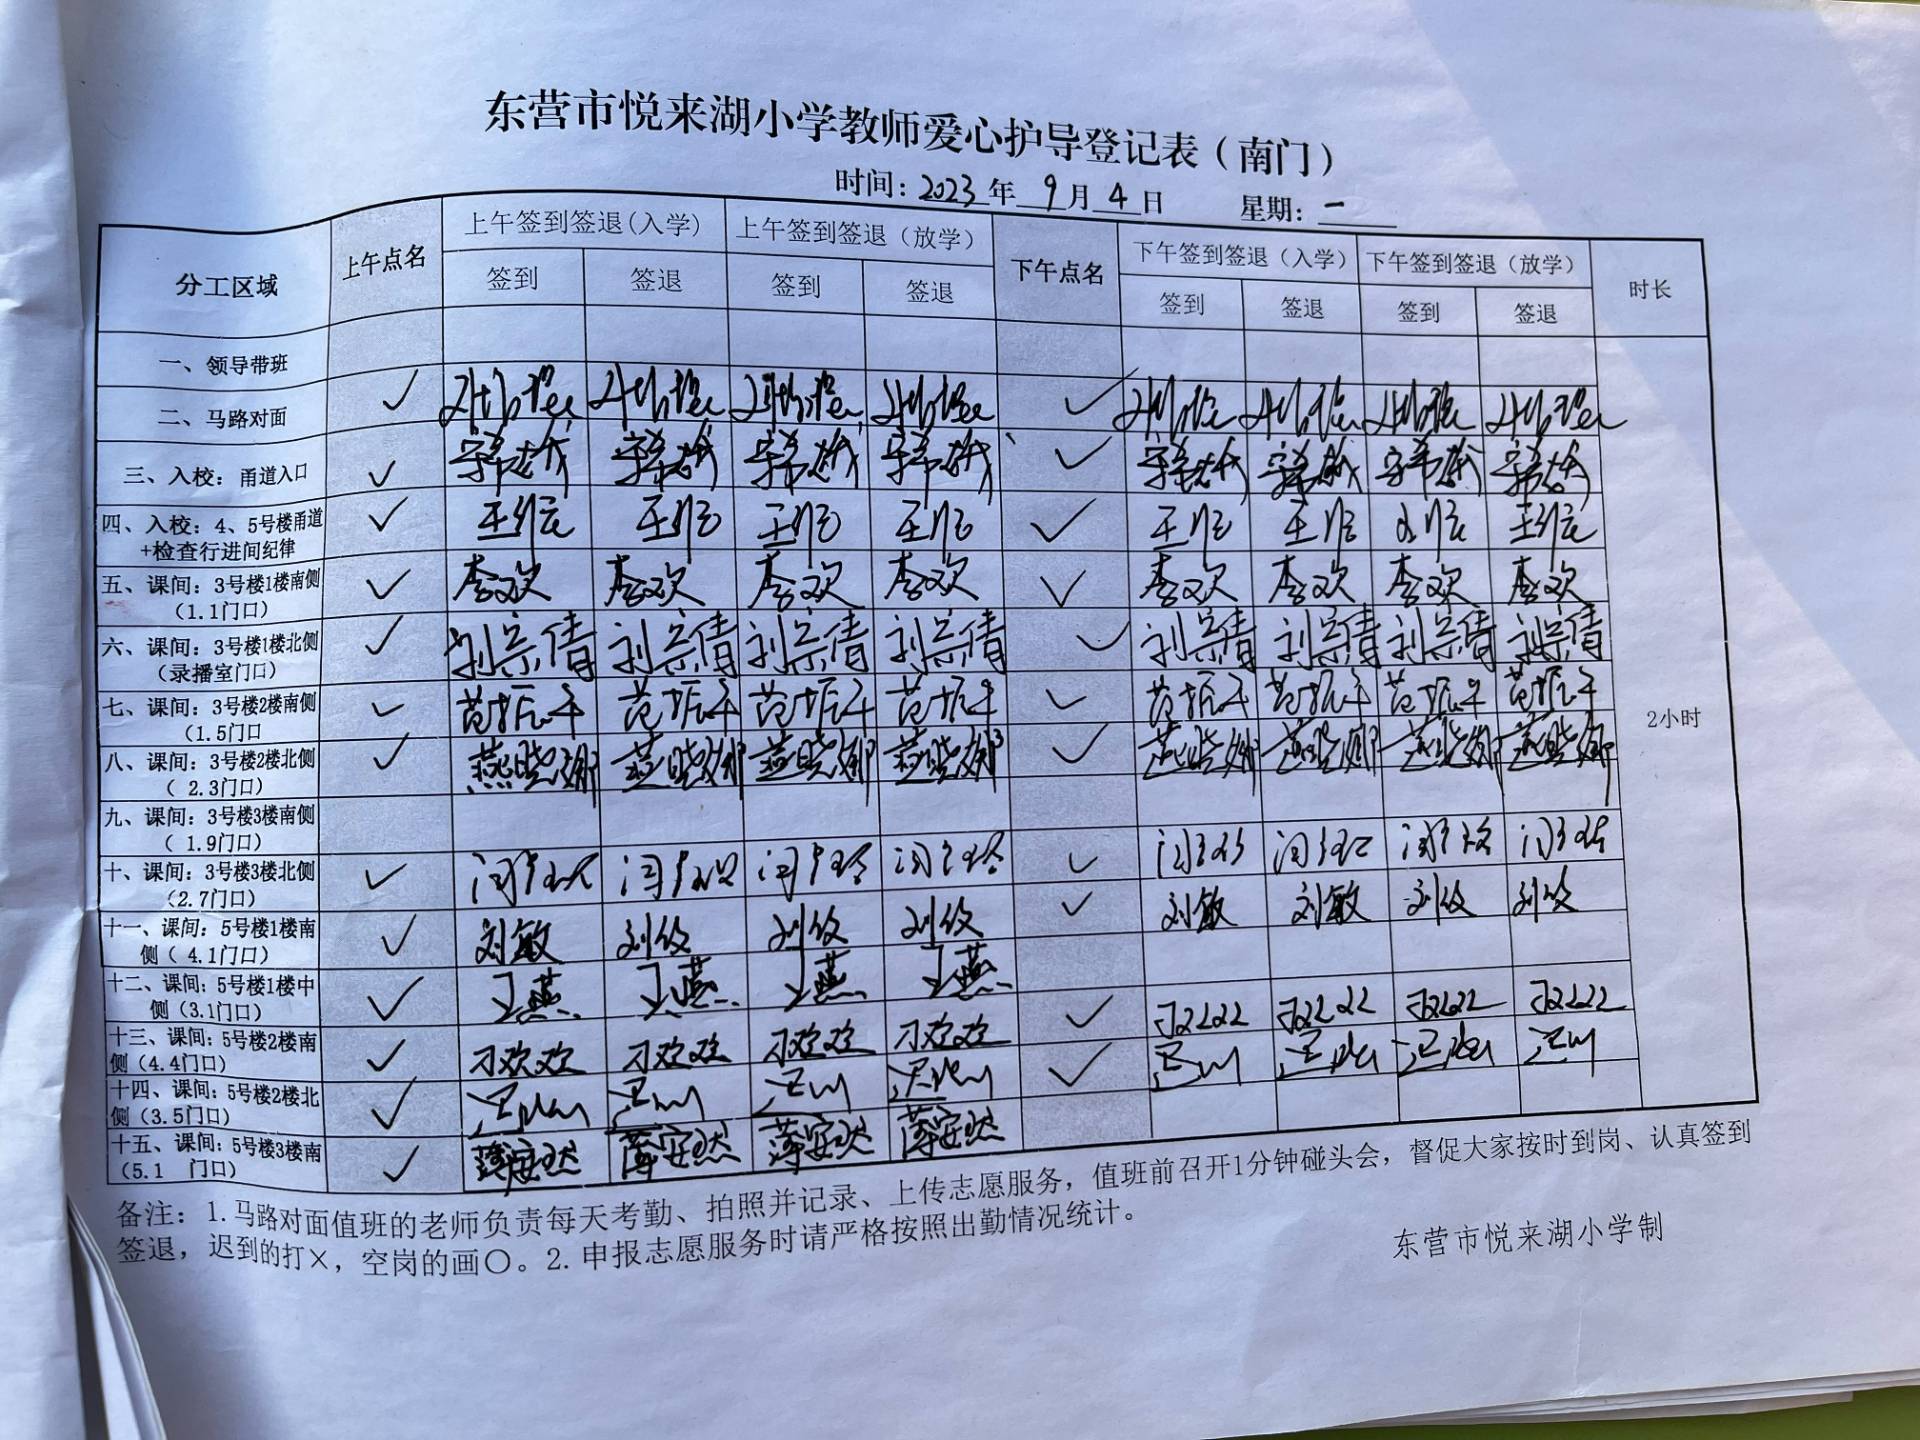 东营市悦来湖小学教师爱心护导登记表（南门）
时间：2023年 9月 4日 星期：一
分工区域 上午点名 上午签到签退(入学) 上午签到签退（放学） 下午点名 下午签到签退（入学） 下午签到签退（放学） 时长
签到 签退 签到 签退 签到 签退 签到 签退
一、领导带班
二、马路对面 ✓ ✓
三、入校：甬道入口 ✓ ✓
四、入校：4、5号楼甬道 ✓ ✓
+检查行进间纪律
五、课间：3号楼1楼南侧 ✓ 李欢 李欢 李欢 李欢 ✓ 李欢 李欢 李欢 李欢
（1.1门口）
六、课间：3号楼1楼北侧 ✓ 刘宗倩 刘宗倩 刘宗倩 刘宗倩 ✓ 刘宗倩 刘宗倩 刘宗倩 刘宗倩
（录播室门口）
七、课间：3号楼2楼南侧 ✓ ✓
（1.5门口
2小时
八、课间：3号楼2楼北侧 ✓ 燕晓娜 燕晓娜 燕晓娜 燕晓娜 ✓ 燕晓娜 燕晓娜 燕晓娜 燕晓娜
（ 2.3门口）
九、课间：3号楼3楼南侧
（ 1.9门口）
十、课间：3号楼3楼北侧 ✓ ✓
（2.7门口）
十一、课间：5号楼1楼南 ✓ 刘敏 刘敏 刘敏 刘敏 ✓ 刘敏 刘敏 刘敏 刘敏
侧（ 4.1门口）
十二、课间：5号楼1楼中 ✓ 王燕 王燕 王燕 王燕
侧（3.1门口）
十三、课间：5号楼2楼南 ✓ 刁欢欢 刁欢欢 刁欢欢 刁欢欢 ✓
侧（4.4门口）
十四、课间：5号楼2楼北 ✓ ✓
侧（3.5门口）
十五、课间：5号楼3楼南 ✓ 薄安然 薄安然 薄安然 薄安然
（5.1 门口）
备注：1.马路对面值班的老师负责每天考勤、拍照并记录、上传志愿服务，值班前召开1分钟碰头会，督促大家按时到岗、认真签到
签退，迟到的打×，空岗的画○。2.申报志愿服务时请严格按照出勤情况统计。
东营市悦来湖小学制